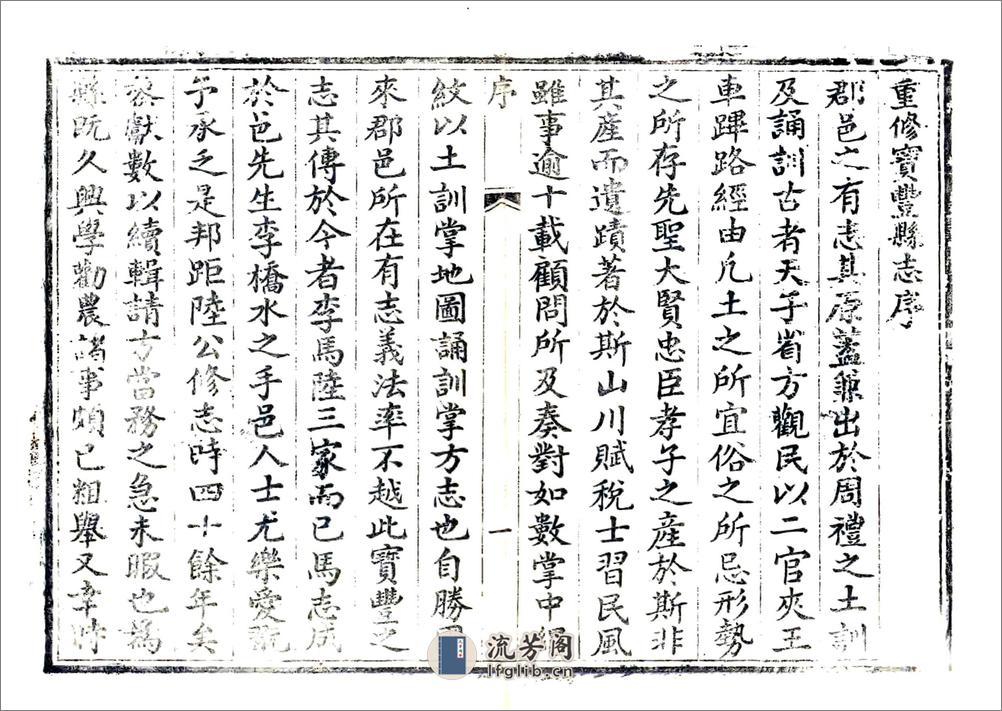 重修寶豐縣志序
郡邑之有志其原蓋兼出於周禮之土訓
及誦訓古者天子省方觀民以二官夾王
車蹕路經由凡土之所宜俗之所忌形勢
之所存先聖大賢忠臣孝子之産於斯非
其産而遺蹟著於斯山川賦稅士習民風
雖事逾十載顧問所及奏對如數掌中
序
一
紋以土訓掌地圖誦訓掌方志也自勝
來郡邑所在有志義法率不越此寶豐之
志其傳於今者李馬陸三家而已馬志成
於邑先生李橋水之手邑人士尤樂愛
予承乏是邦距陸公修志時四十餘年矣
獻數以續輯請方當務之急未暇也爲
縣既久興學勸農諸事頗已粗舉又幸時
流芳閣
lfglib.cn